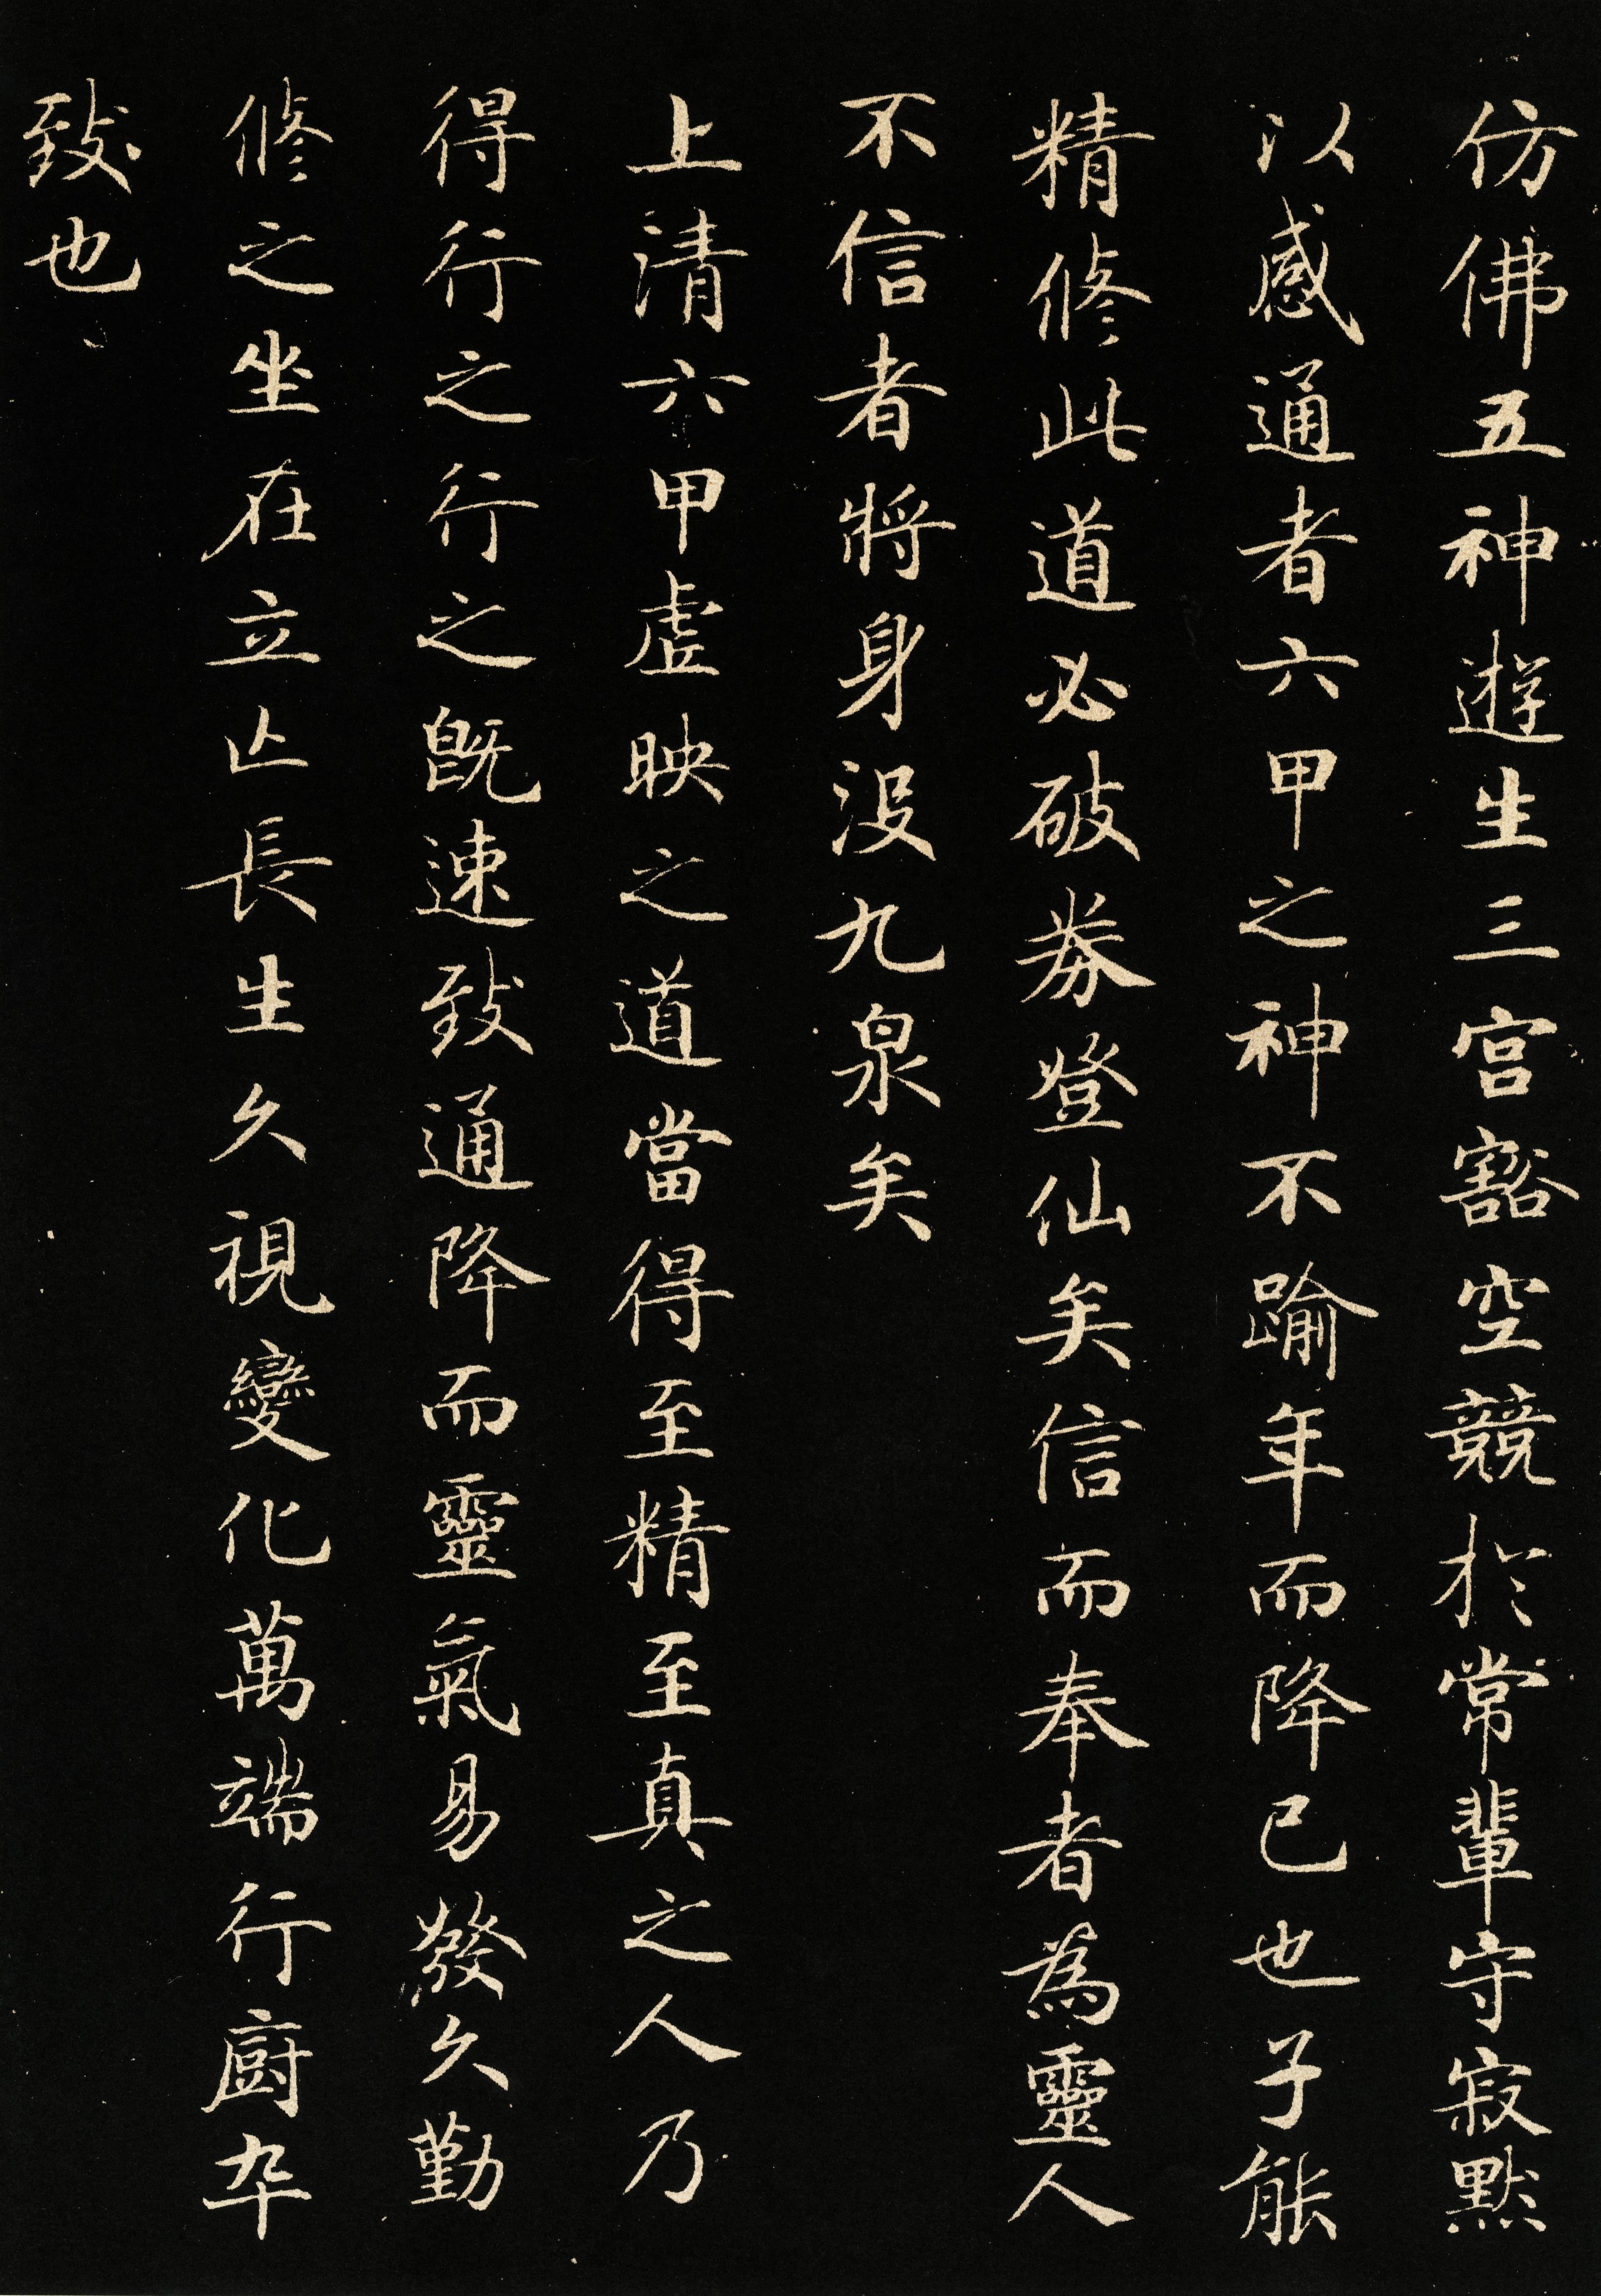 仿佛五神遊生三宮豁空競於常輩守寂默
以感通者六甲之神不踰年而降已也子能
精修此道必破券登仙矣信而奉者為靈人
不信者將身沒九泉矣
上清六甲虛映之道當得至精至真之人乃
得行之行之既速致通降而靈氣易發久勤
修之坐在立亡長生久視變化萬端行廚卒
致也